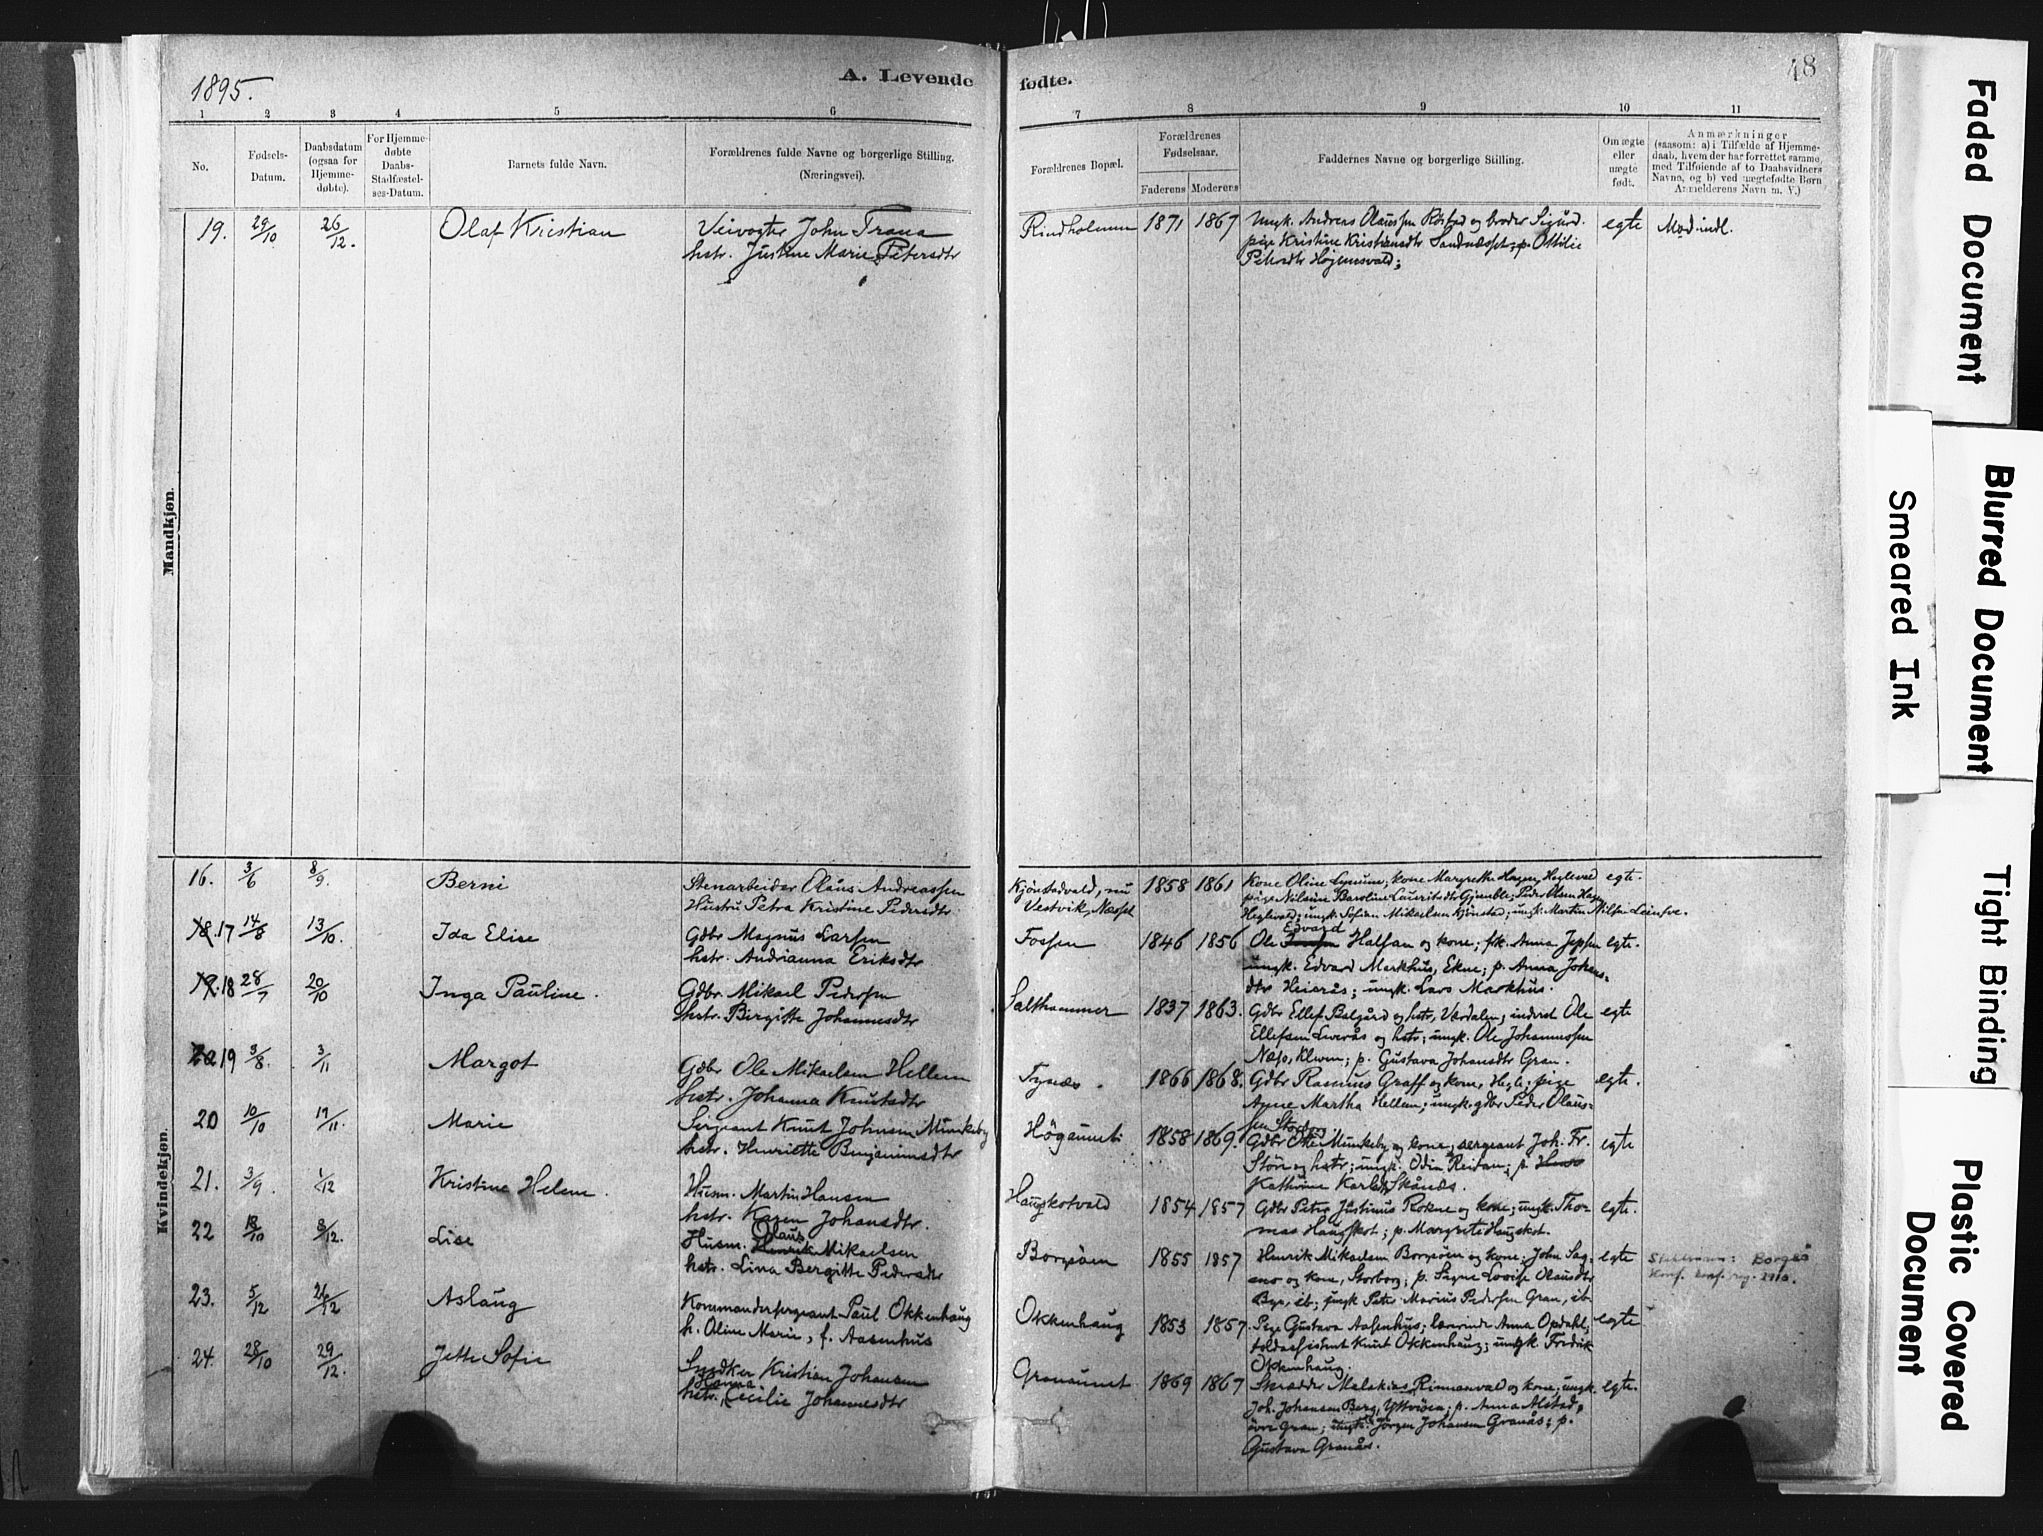 1895.
A. Levende
fødte.
48
1 2 3 4 5 6
7 8 9 10 11
No.
Fødsels-
Datum.
Daabsdatum
(ogsaa for
Hjemme-
døbte).
For Hjemme-
døbte
Daabs-
Stadfæstel-
ses-Datum.
Barnets fulde Navn.
Forældrenes fulde Navne og borgerlige Stilling.
(Næringsvei).
Forældrenes Bopæl.
Forældrenes
Fødselsaar.
Faderens Moderens
Faddernes Navne og borgerlige Stilling.
Om ægte
eller
uægte
født.
Anmærkninger
(saasom: a) i Tilfælde af Hjemme-
daab, hvem der har forrettet samme,
med Tilføiende af to Daabsvidners
Navne, og b) ved uægtefødte Børn
Anmelderens Navn m. V.)
Mandkjøn.
19. 29/10 26/12. Olaf Kristian
Veivogter John Trana
hstr. Justine Marie Petersdtr
Rindholmen 1871 1867
Ungk. Andreas Olaussen og broder Sigurd.
pige Kristine Kristiansdtr p. Ottilie
egte
Mod. indl.
Kvindekjøn.
16. 3/6 8/9. Berni
Stenarbeider Olaus Andreassen
Hustru Petra Kristine Pedersdtr
Kjønstadvald, nu
Vestvik, Næsset
1858 1861
Kone Oline Lynum; kone Margrethe Hagen, Heglevald
pige Nilsine Baroline Lauritsdtr Gjemble; Peder Olsen
Heglevald; ungk. Sefanias Mikaelsen Kjønstad; ungk. Martin Nilsen
egte.
18. 17 14/8 13/10. Ida Elise
Gdbr Magnus Larsen
hstr. Andrianna Eriksdtr
Fossen 1846 1856
Edvard
Ole Halsan og kone; frk. Anna Jepsen
ungk. Edvard Markhus, Ekne; p. Anna Johans-
dtr Heieraas; ungk. Lars Markhus.
egte.
19. 18 28/7 20/10 Inga Pauline.
Gdbr. Mikael Pedersen
hstr. Birgitte Johannesdtr
Salthammer 1837 1863.
Gdbr Ellef Balgård og hstr, Værdalen; inderst Ole
Ellefsen og hstr; ungk. Ole Johannessen
p. Gustava Johansdtr Gran.
egte
20 19 3/8. 3/11 Margot
Gdbr Ole Mikaelsen Hellem
hstr. Johanna Knutsdtr
Tynæs. 1866 1868.
Gdbr Rasmus Graff og kone, Hegle; pige
Anne Martha Hellem; ungk. gdbr Peder Olaus-
sen
egte.
20 10/10 17/11. Marie
Sergeant Knut Johnsen Munkeby
hstr. Henriette Benjaminsdtr
Høgaunet 1858 1869.
Gdbr Ole Munkeby og kone; sergeant Joh. Fr.
Støre og hstr; ungk. Odin Reitan; p.
Kathrine Karlsdtr Skånes.
egte
21. 3/9. 1/12 Kristine Helene.
Husm. Martin Hansen
hstr. Karen Johansdtr.
Haugskotvald 1854 1857
Gdbr Peter Justinus Rokne og kone; ungk. Tho-
mas Haugskot; p. Margrete Haugskot.
egte.
22 18/10 8/12. Lise
Olaus
Husm. Henrik Mikaelsen
hstr. Lina Bergitte Pedersdtr
Borgsöen 1855 1857
Henrik Mikaelsen Borgsöen og kone; John Sag-
 og kone, Storborg; p. Signe Lovise Olausdtr
ib; ungk. Peter Marius Pedersen Gran, ib.
egte
23. 5/12 26/12 Aslaug
Kommandersergeant Paul Okkenhaug
h. Oline Marie, f. Aasenhus
Okkenhaug 1853 1857.
Pige Gustava Aasenhus; lærerinde Anna Opdahl;
toldassistent Knut Okkenhaug; ungk. Fredrik
Okkenhaug.
egte
24. 28/10 29/12. Jette Sofie
Snedker Kristian Johansen
Hanna
hstr. Cecilie Johannesdtr
Granaunet 1869 1867
Skrædder Malakias Rinnanvald og kone; ungk.
Joh. Johansen Berg, Ytterøen; p. Anna Alstad,
øvre Gran; ungk. Jørgen Johansen Granås; p.
Gustava Granås.
egte.
Faded Document
Blurred Document
Smeared Ink
Tight Binding
Plastic Covered
Document